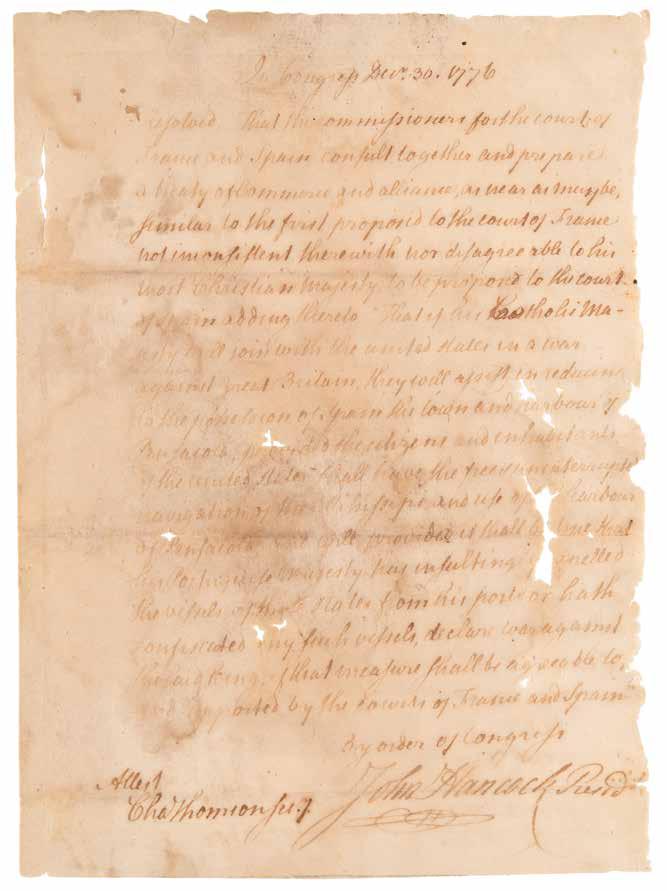 In Congress Decr. 30. 1776
resolved That the commissioners for the courts of
France and Spain consult together and prepare
a treaty of commerce and alliance, as near as may be,
similar to the first proposed to the court of France
not inconsistent therewith nor disagreeable to his
most Christian majesty, to be proposed to the court
of Spain adding thereto "That if his Catholic Ma-
jesty will join with the united states in a war
against great Britain, they will assist in reducing
to the possession of Spain the town and harbour of
Pensacola, provided the citizens and inhabitants
of the united states shall have the free & uninterrupted
navigation of the Mississippi and use of harbour
of Pensacola and will provided it shall be true that
his Portuguese majesty has insultingly expelled
the vessels of these states from his ports or hath
confiscated any such vessels, declare war against
the said king, if that measure shall be agreeable to,
and supported by the courts of France and Spain"
By order of Congress
John Hancock Presidt
Attest
Cha Thomson secy